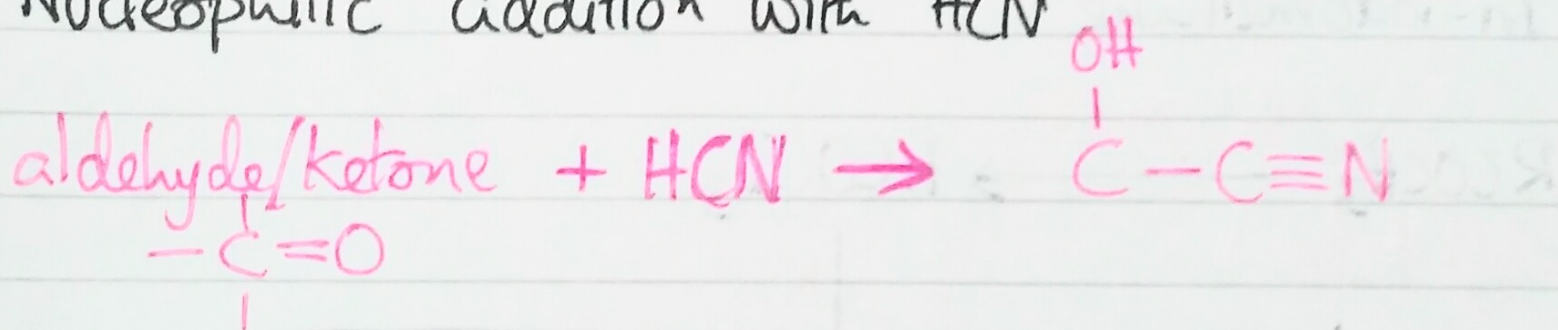 Nucleophilic addition with HCN
OH
aldehyde/ketone + HCN → C–C≡N
–C=O